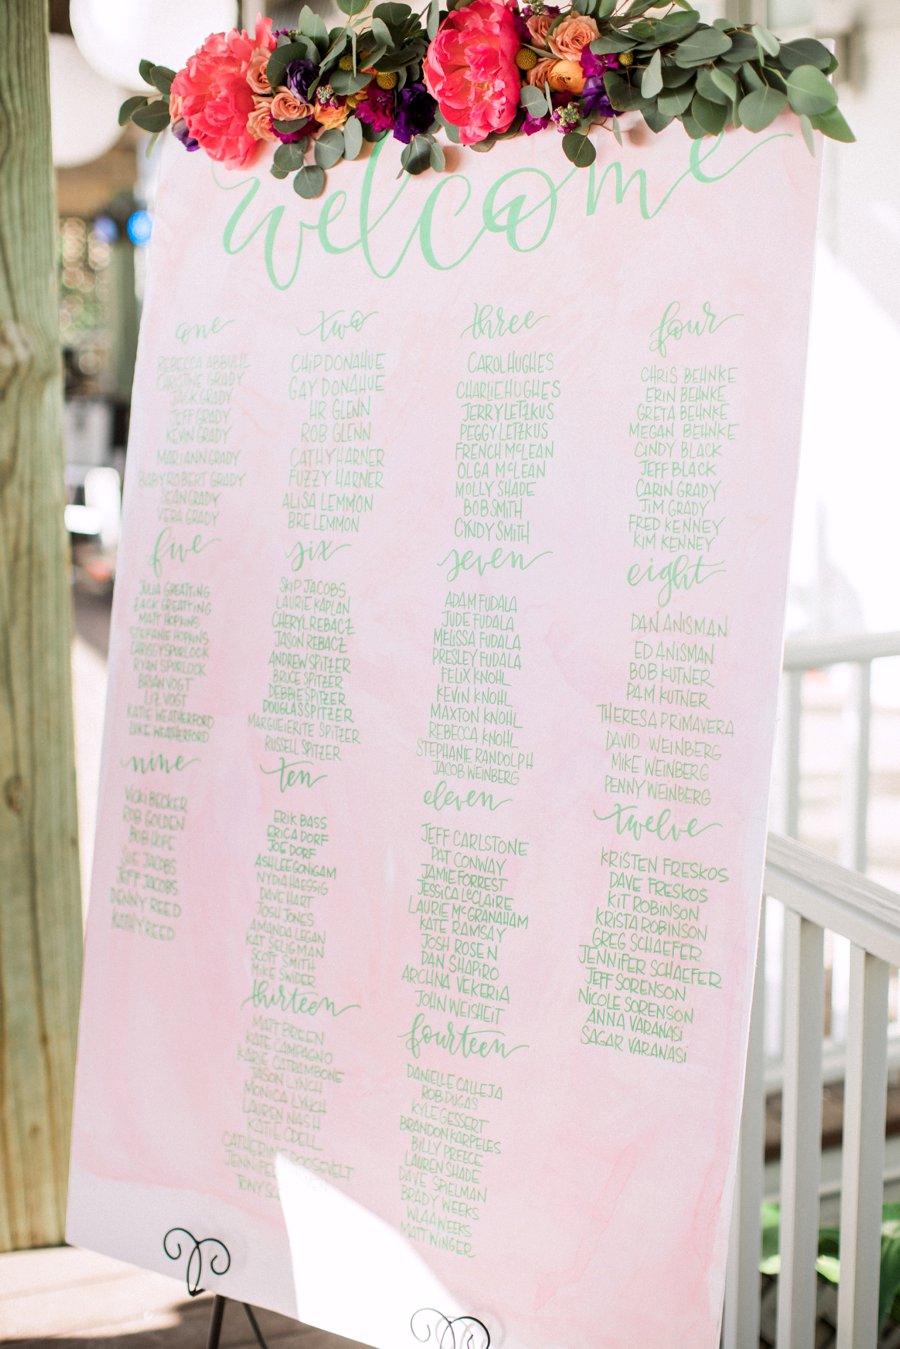 welcome
one
REBECCA ABBUHL
CHRISTINE GRADY
JACK GRADY
JEFF GRADY
KEVIN GRADY
MARIANN GRADY
BABY ROBERT GRADY
SEAN GRADY
VERA GRADY
two
CHIP DONAHUE
GAY DONAHUE
HR GLENN
ROB GLENN
CATHY HARNER
FUZZY HARNER
ALISA LEMMON
BRE LEMMON
three
CAROL HUGHES
CHARLIE HUGHES
JERRY LETZKUS
PEGGY LETZKUS
FRENCH McLEAN
OLGA McLEAN
MOLLY SHADE
BOB SMITH
CYNDY SMITH
four
CHRIS BEHNKE
ERIN BEHNKE
GRETA BEHNKE
MEGAN BEHNKE
CINDY BLACK
JEFF BLACK
CARIN GRADY
JIM GRADY
FRED KENNEY
KIM KENNEY
five
JULIA GREATTING
ZACK GREATTING
MATT HOPKINS
STEFANIE HOPKINS
CHRISSY SPURLOCK
RYAN SPURLOCK
BRIAN VOGT
LIZ VOGT
KATIE WEATHERFORD
LUKE WEATHERFORD
six
SKIP JACOBS
LAURIE KAPLAN
CHERYL REBACZ
JASON REBACZ
ANDREW SPITZER
BRUCE SPITZER
DEBBIE SPITZER
DOUGLAS SPITZER
MARGUEIERITE SPITZER
RUSSELL SPITZER
seven
ADAM FUDALA
JUDE FUDALA
MELISSA FUDALA
PRESLEY FUDALA
FELIX KNOHL
KEVIN KNOHL
MAXTON KNOHL
REBECCA KNOHL
STEPHANIE RANDOLPH
JACOB WEINBERG
eight
DAN ANISMAN
ED ANISMAN
BOB KUTNER
PAM KUTNER
THERESA PRIMAVERA
DAVID WEINBERG
MIKE WEINBERG
PENNY WEINBERG
nine
VICKI BECKER
ROB GOLDEN
BOB HOPE
SUE JACOBS
JEFF JACOBS
DENNY REED
KATHY REED
ten
ERIK BASS
ERICA DORF
JOE DORF
ASHLEE GONIGAM
NYDIA HAESSIG
DAVE HART
JOSH JONES
AMANDA LEGAN
KAT SELIGMAN
SCOTT SMITH
MIKE SWIDER
eleven
JEFF CARLSTONE
PAT CONWAY
JAMIE FORREST
JESSICA LeCLAIRE
LAURIE McGRANAHAM
KATE RAMSAY
JOSH ROSEN
DAN SHAPIRO
ARCHNA VEKERIA
JOHN WEISHEIT
twelve
KRISTEN FRESKOS
DAVE FRESKOS
KIT ROBINSON
KRISTA ROBINSON
GREG SCHAEFER
JENNIFER SCHAEFER
JEFF SORENSON
NICOLE SORENSON
ANNA VARANASI
SAGAR VARANASI
thirteen
MATT BREEN
KATE CAMPAGNO
KARIE CATRAMBONE
JASON LYNCH
MONICA LYNCH
LAUREN NASH
KATIE ODELL
CATHERINE ROOSEVELT
JENNIFER
TONY
fourteen
DANIELLE CALLEJA
ROB DUGAS
KYLE GESSERT
BRANDON KARPELES
BILLY PREECE
LAUREN SHADE
DAVE SPIELMAN
BRADY WEEKS
WEEKS
MATT WINGER